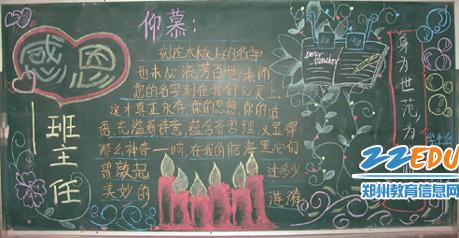 感恩
班主任
仰慕:
刻在木板上的名字
也未必流芳百世,老师
您的名字刻在我们心灵上,
这才真正永存,你的思想,你的话
语,充溢着诗意,蕴含着哲理,又显得
那么神奇——呵,在我的脑海里,它们
曾激起 过多少
美妙的 涟漪
Dear
teacher
身为世范为
22EDU
郑州教育信息网